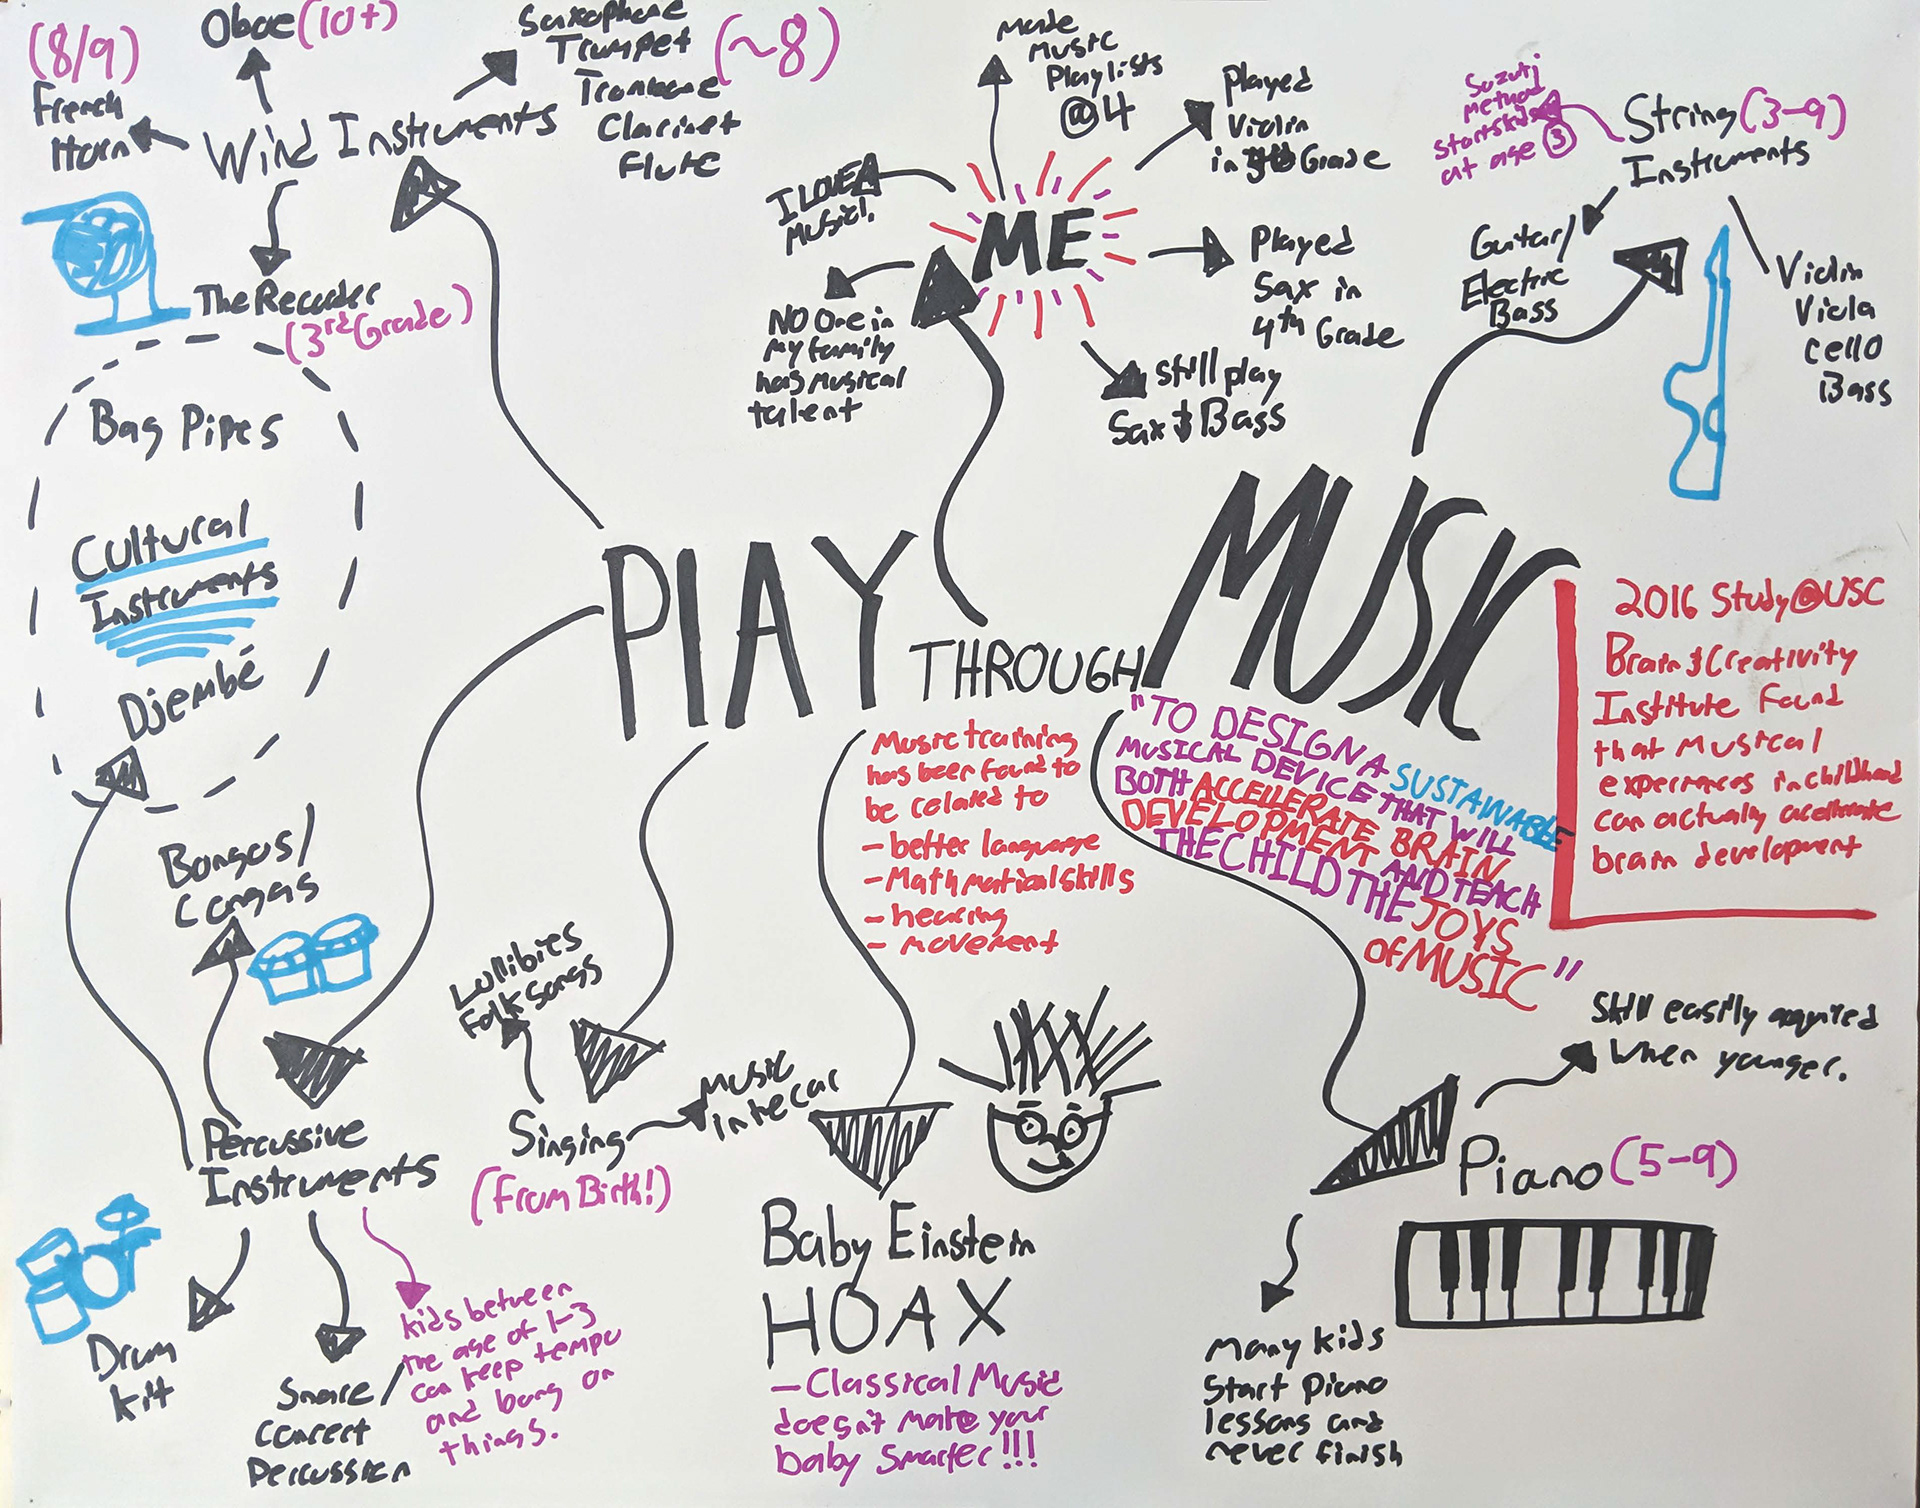 (8/9)
French
Horn
Oboe (10+)
Saxophone
Trumpet
Trombone
Clarinet
Flute
(~8)
Wind Instruments
The Recorder
(3rd Grade)
Bag Pipes
Cultural
Instruments
Djembé
Bongos/
Congas
Percussive
Instruments
Drum
kit
Snare/
Concert
Percussion
kids between
the age of 1-3
can keep tempo
and bang on
things.
Made
Music
Playlists
@4
Played
Violin
in Grade
I LOVE
Music!
ME
Played
Sax in
4th Grade
NO One in
My family
has Musical
talent
Still play
Sax & Bass
Suzuki
Method
starts kids
at age 3
String (3-9)
Instruments
Guitar/
Electric
Bass
Violin
Viola
Cello
Bass
PLAY
THROUGH
MUSIC
Music training
has been found to
be related to
- better language
- Mathmatical skills
- hearing
- movement
"TO DESIGN A SUSTAINABLE
MUSICAL DEVICE THAT WILL
BOTH ACCELLERATE BRAIN
DEVELOPMENT AND TEACH
THE CHILD THE JOYS
OF MUSIC"
2016 Study @ USC
Brain & Creativity
Institute Found
that Musical
experiences in childhood
can actually accelerate
brain development
Lullibies
Folk Songs
Singing
(From Birth!)
Music
in te car
Baby Einstein
HOAX
- Classical Music
doesn't make your
baby Smarter!!!
Skill easily aquired
when younger.
Piano (5-9)
Many kids
Start Piano
lessons and
never finish